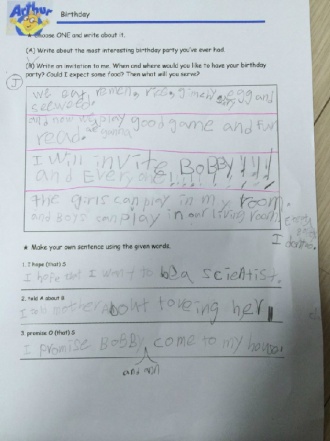 Arthur
Birthday
★ Choose ONE and write about it.
(A) Write about the most interesting birthday party you've ever had.
(B) Write an invitation to me. When and where would you like to have your birthday
party? Could I expect some food? Then what will you serve?
we eat ramen, rice, egg and
seeweed.
and now we play good game and fun
read.
I will invite BOBBY!!!!
and Everyone!!!!!!!!
the girls can play in my room.
and boys can play in our living room.
I
★ Make your own sentence using the given words.
1. I hope (that) S
I hope that I want to be a scientist.
2. told A about B
mother about her
3. promise O (that) S
I promise BOBBY come to my house!
and